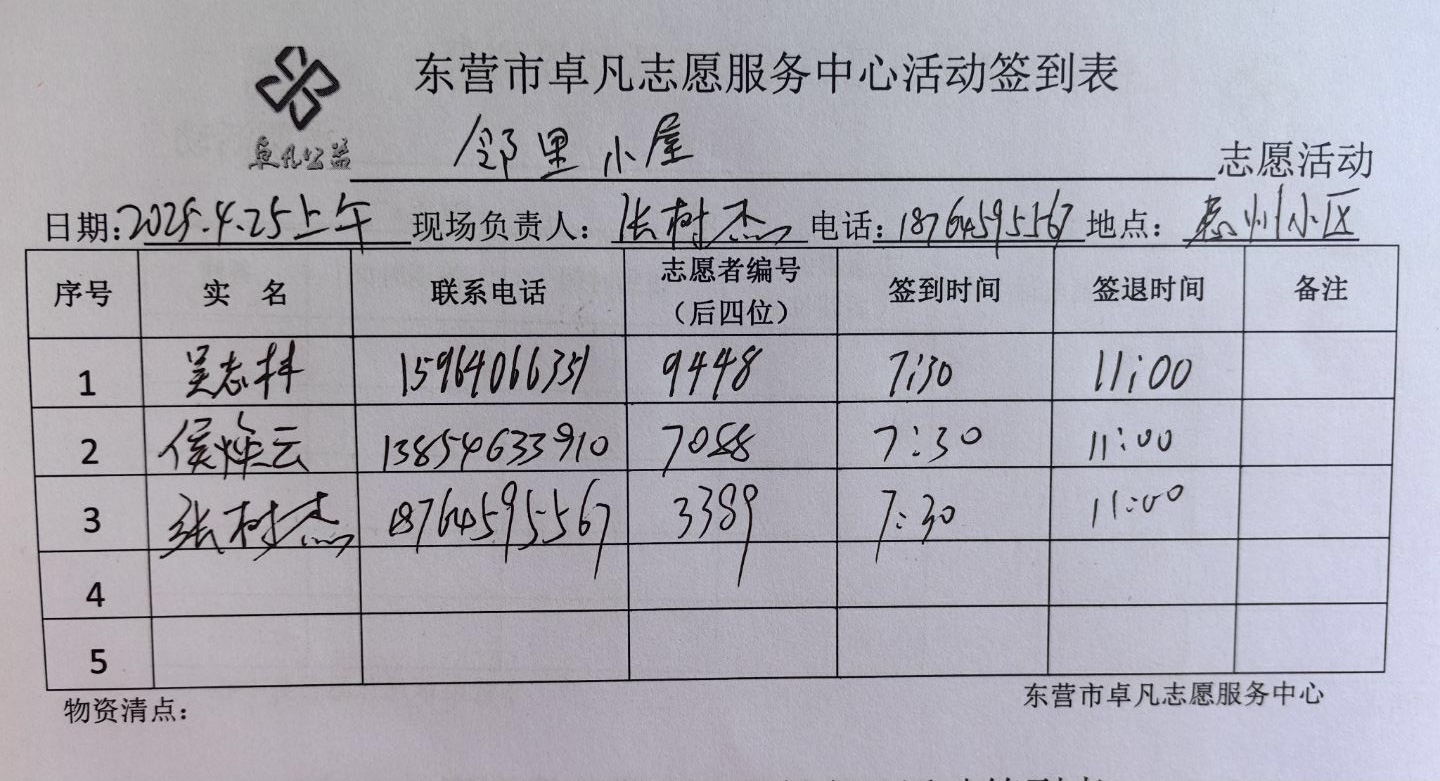 东营市卓凡志愿服务中心活动签到表
卓凡公益 邻里小屋 志愿活动
日期：2025.4.25上午 现场负责人：张树杰 电话：18764595567 地点：惠州小区
序号 实 名 联系电话 志愿者编号（后四位） 签到时间 签退时间 备注
1 吴志林 15964066351 9448 7:30 11:00
2 侯云 13854633910 7088 7:30 11:00
3 张树杰 18764595567 3389 7:30 11:00
4
5
物资清点： 东营市卓凡志愿服务中心